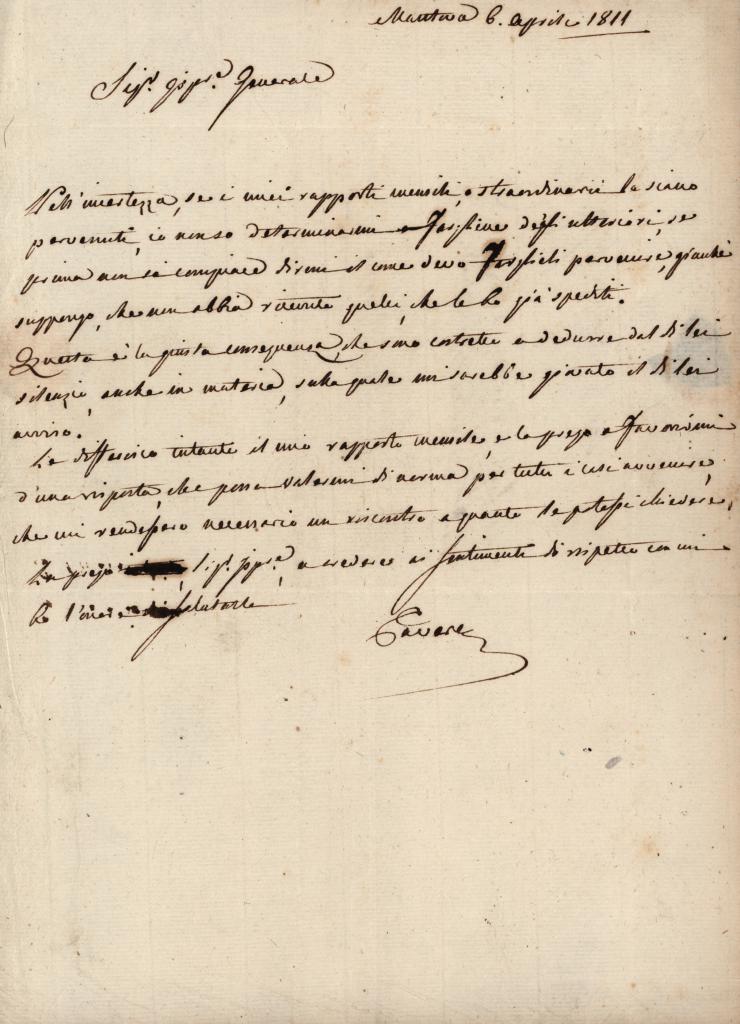 Mantova 6. aprile 1811
Sigr. Ispre. Generale
Nell'incertezza, se i miei rapporti mensili, o straordinarii le siano
pervenuti, io non so determinarmi a fargliene degli ulteriori, se
prima non si compiace dirmi il come devo farglieli pervenire, giacchè
suppongo, che non abbia ricevuto quelli, che le ho già spediti.
Questa è la giusta conseguenza, che sono costretto a dedurre dal di lei
silenzio, anche in materia, sulla quale mi sarebbe giovato il di lei
avviso.
Le diffascico intanto il mio rapporto mensile, e la prego a favorirmi
d'una risposta, che possa valermi di norma per tutti i casi avvenire,
che mi rendessero necessario un riscontro a quanto le potessi chiedere.
La prego Sigr. Ispre., a credere ai sentimenti di rispetto con cui
ho l'onore di salutarla